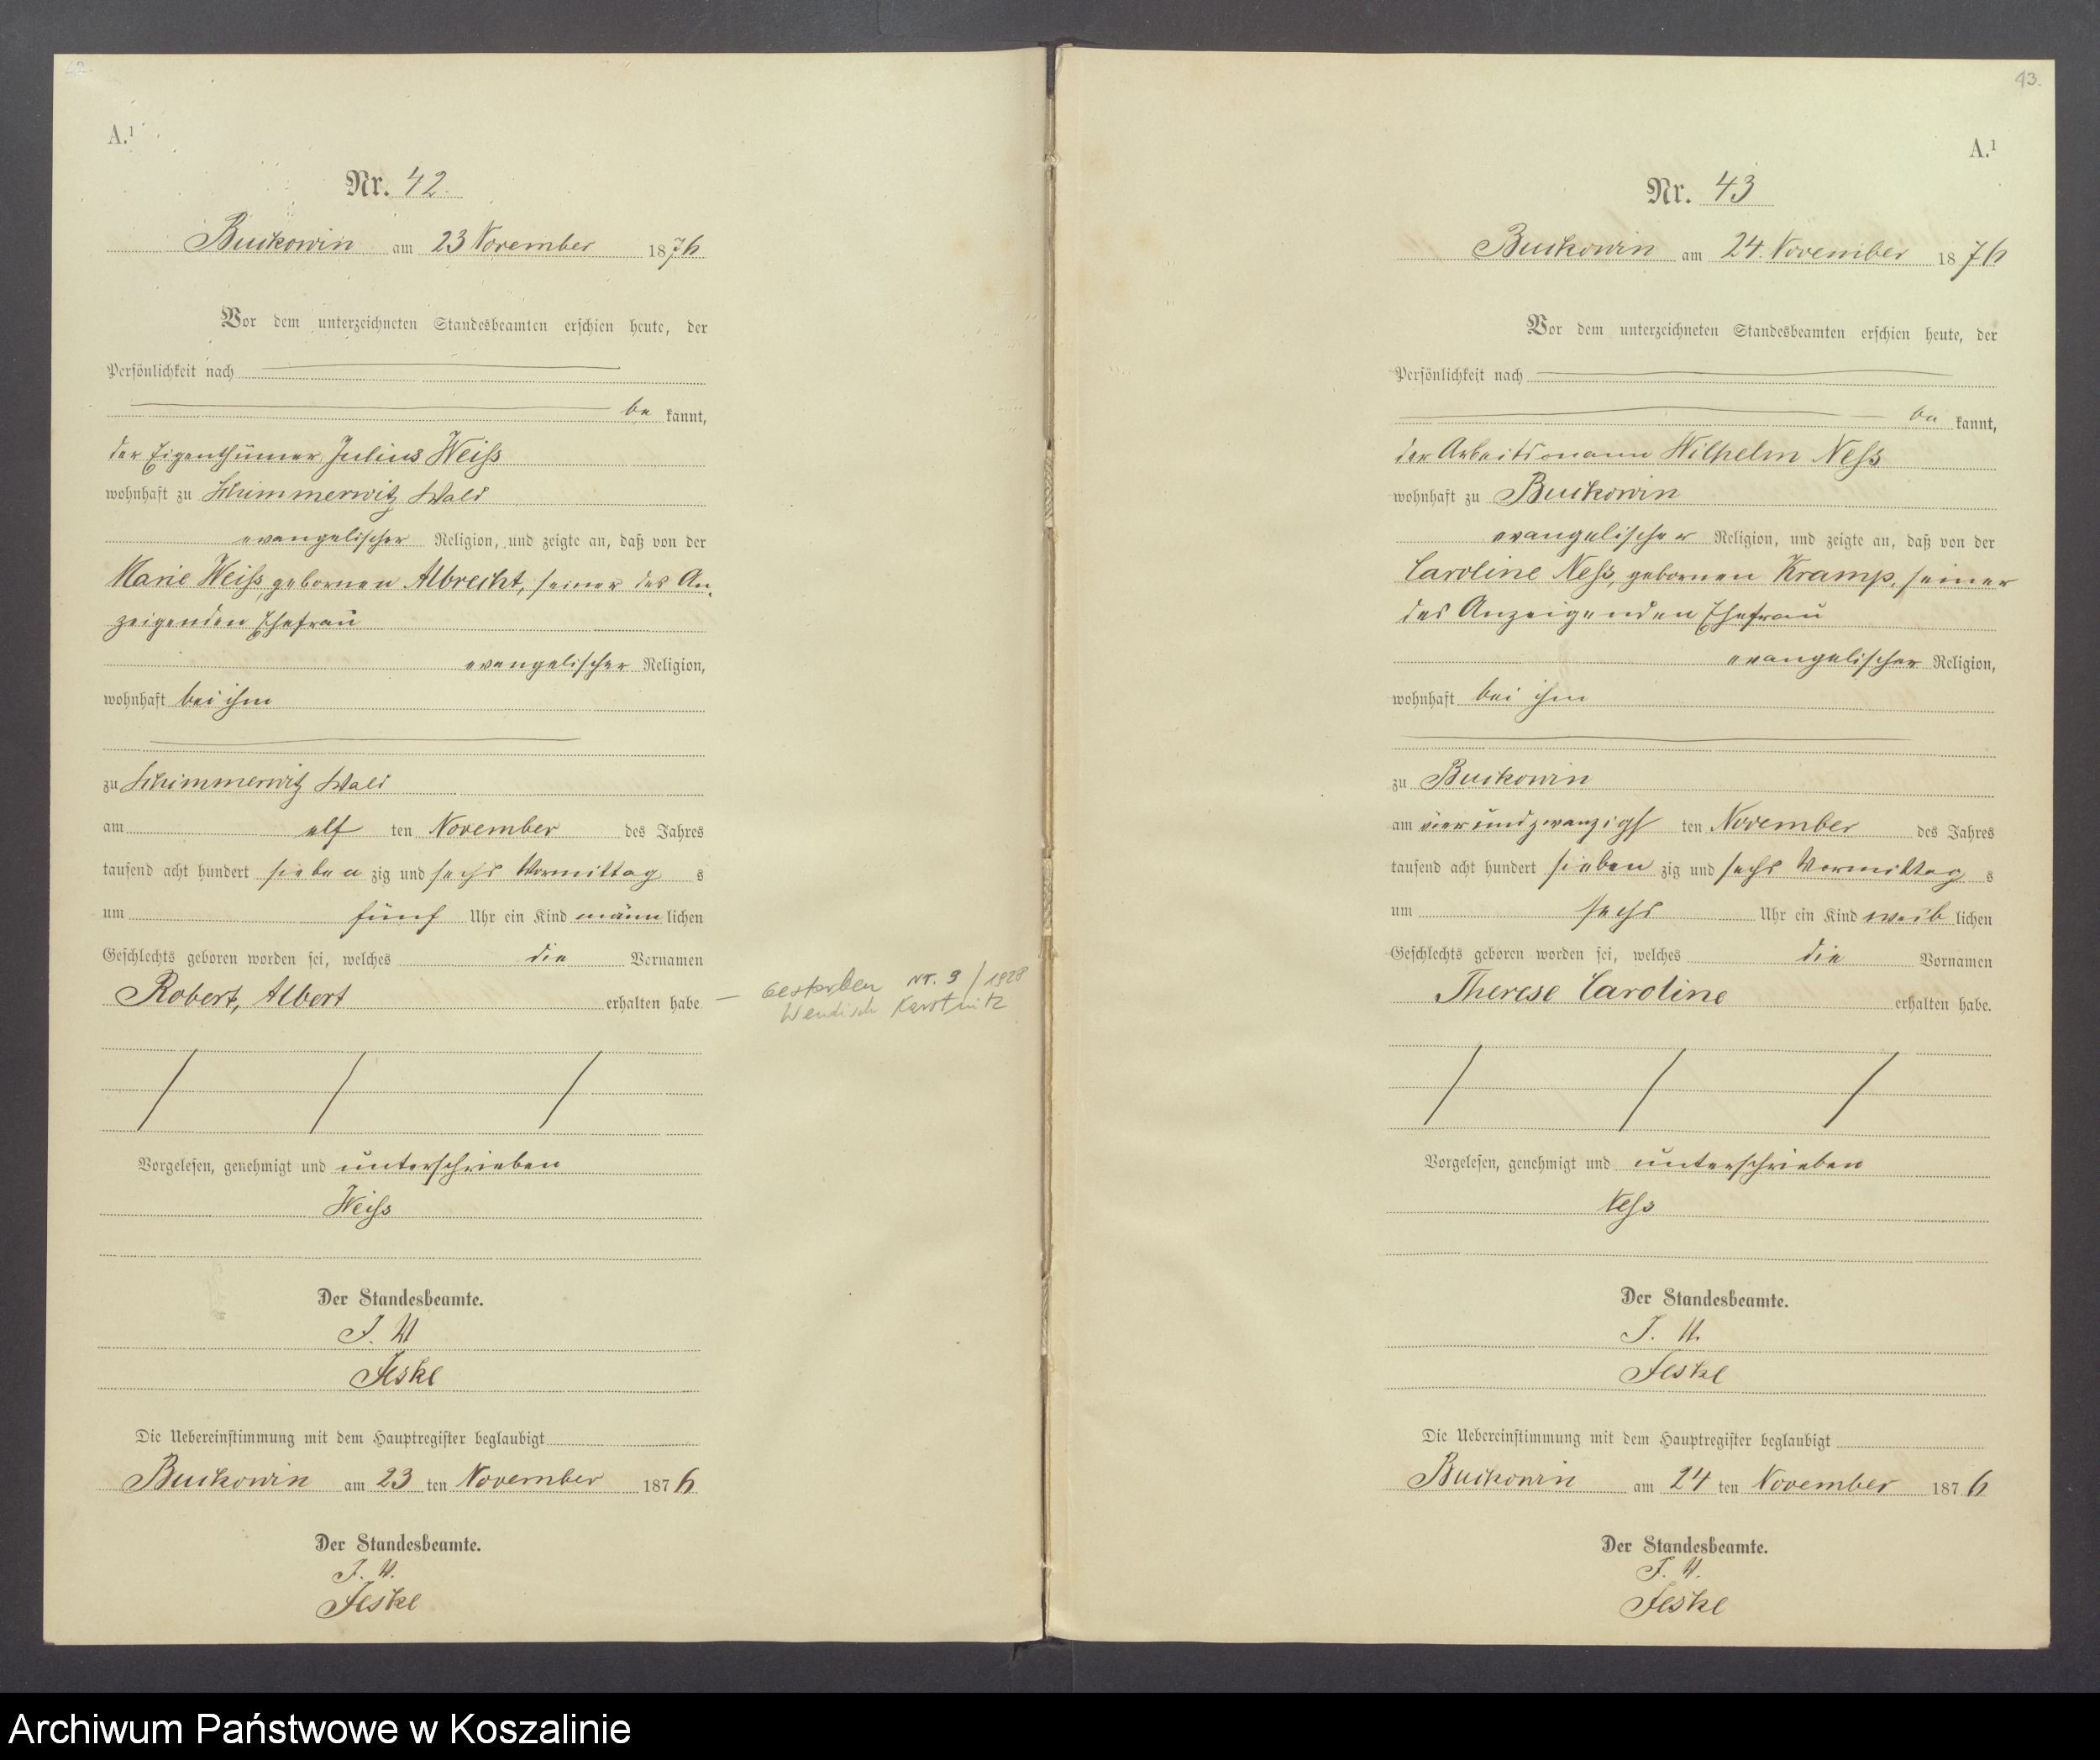 42.
A.¹
Nr. 42.
Buckowin am 23 November 1876
Vor dem unterzeichneten Standesbeamten erschien heute, der
Persönlichkeit nach
be kannt,
der Eigenthümer Julius Weiß
wohnhaft zu Schimmerwitz Wald
evangelischer Religion, und zeigte an, daß von der
Marie Weiß, gebornen Albrecht, seiner des An-
zeigenden Ehefrau
evangelischer Religion,
wohnhaft bei ihm
zu Schimmerwitz Wald
am elf ten November des Jahres
tausend acht hundert sieben zig und sechs Vormittag s
um fünf Uhr ein Kind männ lichen
Geschlechts geboren worden sei, welches die Vornamen
Robert, Albert erhalten habe
— Gestorben Nr. 9/1928
Wendisch Karstnitz
Vorgelesen, genehmigt und unterschrieben
Weiß
Der Standesbeamte.
J. V.
Jeske
Die Uebereinstimmung mit dem Hauptregister beglaubigt
Buckowin am 23 ten November 1876
Der Standesbeamte.
J. V.
Jeske
43.
A.¹
Nr. 43
Buckowin am 24. November 1876
Vor dem unterzeichneten Standesbeamten erschien heute, der
Persönlichkeit nach
be kannt,
der Arbeitsmann Wilhelm Neß
wohnhaft zu Buckowin
evangelischer Religion, und zeigte an, daß von der
Caroline Neß, gebornen Kramp, seiner
des Anzeigenden Ehefrau
evangelischer Religion,
wohnhaft bei ihm
zu Buckowin
am vier und zwanzigs ten November des Jahres
tausend acht hundert sieben zig und sechs Vormittag s
um sechs Uhr ein Kind weib lichen
Geschlechts geboren worden sei, welches die Vornamen
Therese Caroline erhalten habe.
Vorgelesen, genehmigt und unterschrieben
Neß
Der Standesbeamte.
J. V.
Jeske
Die Uebereinstimmung mit dem Hauptregister beglaubigt
Buckowin am 24 ten November 1876
Der Standesbeamte.
J. V.
Jeske
Archiwum Państwowe w Koszalinie